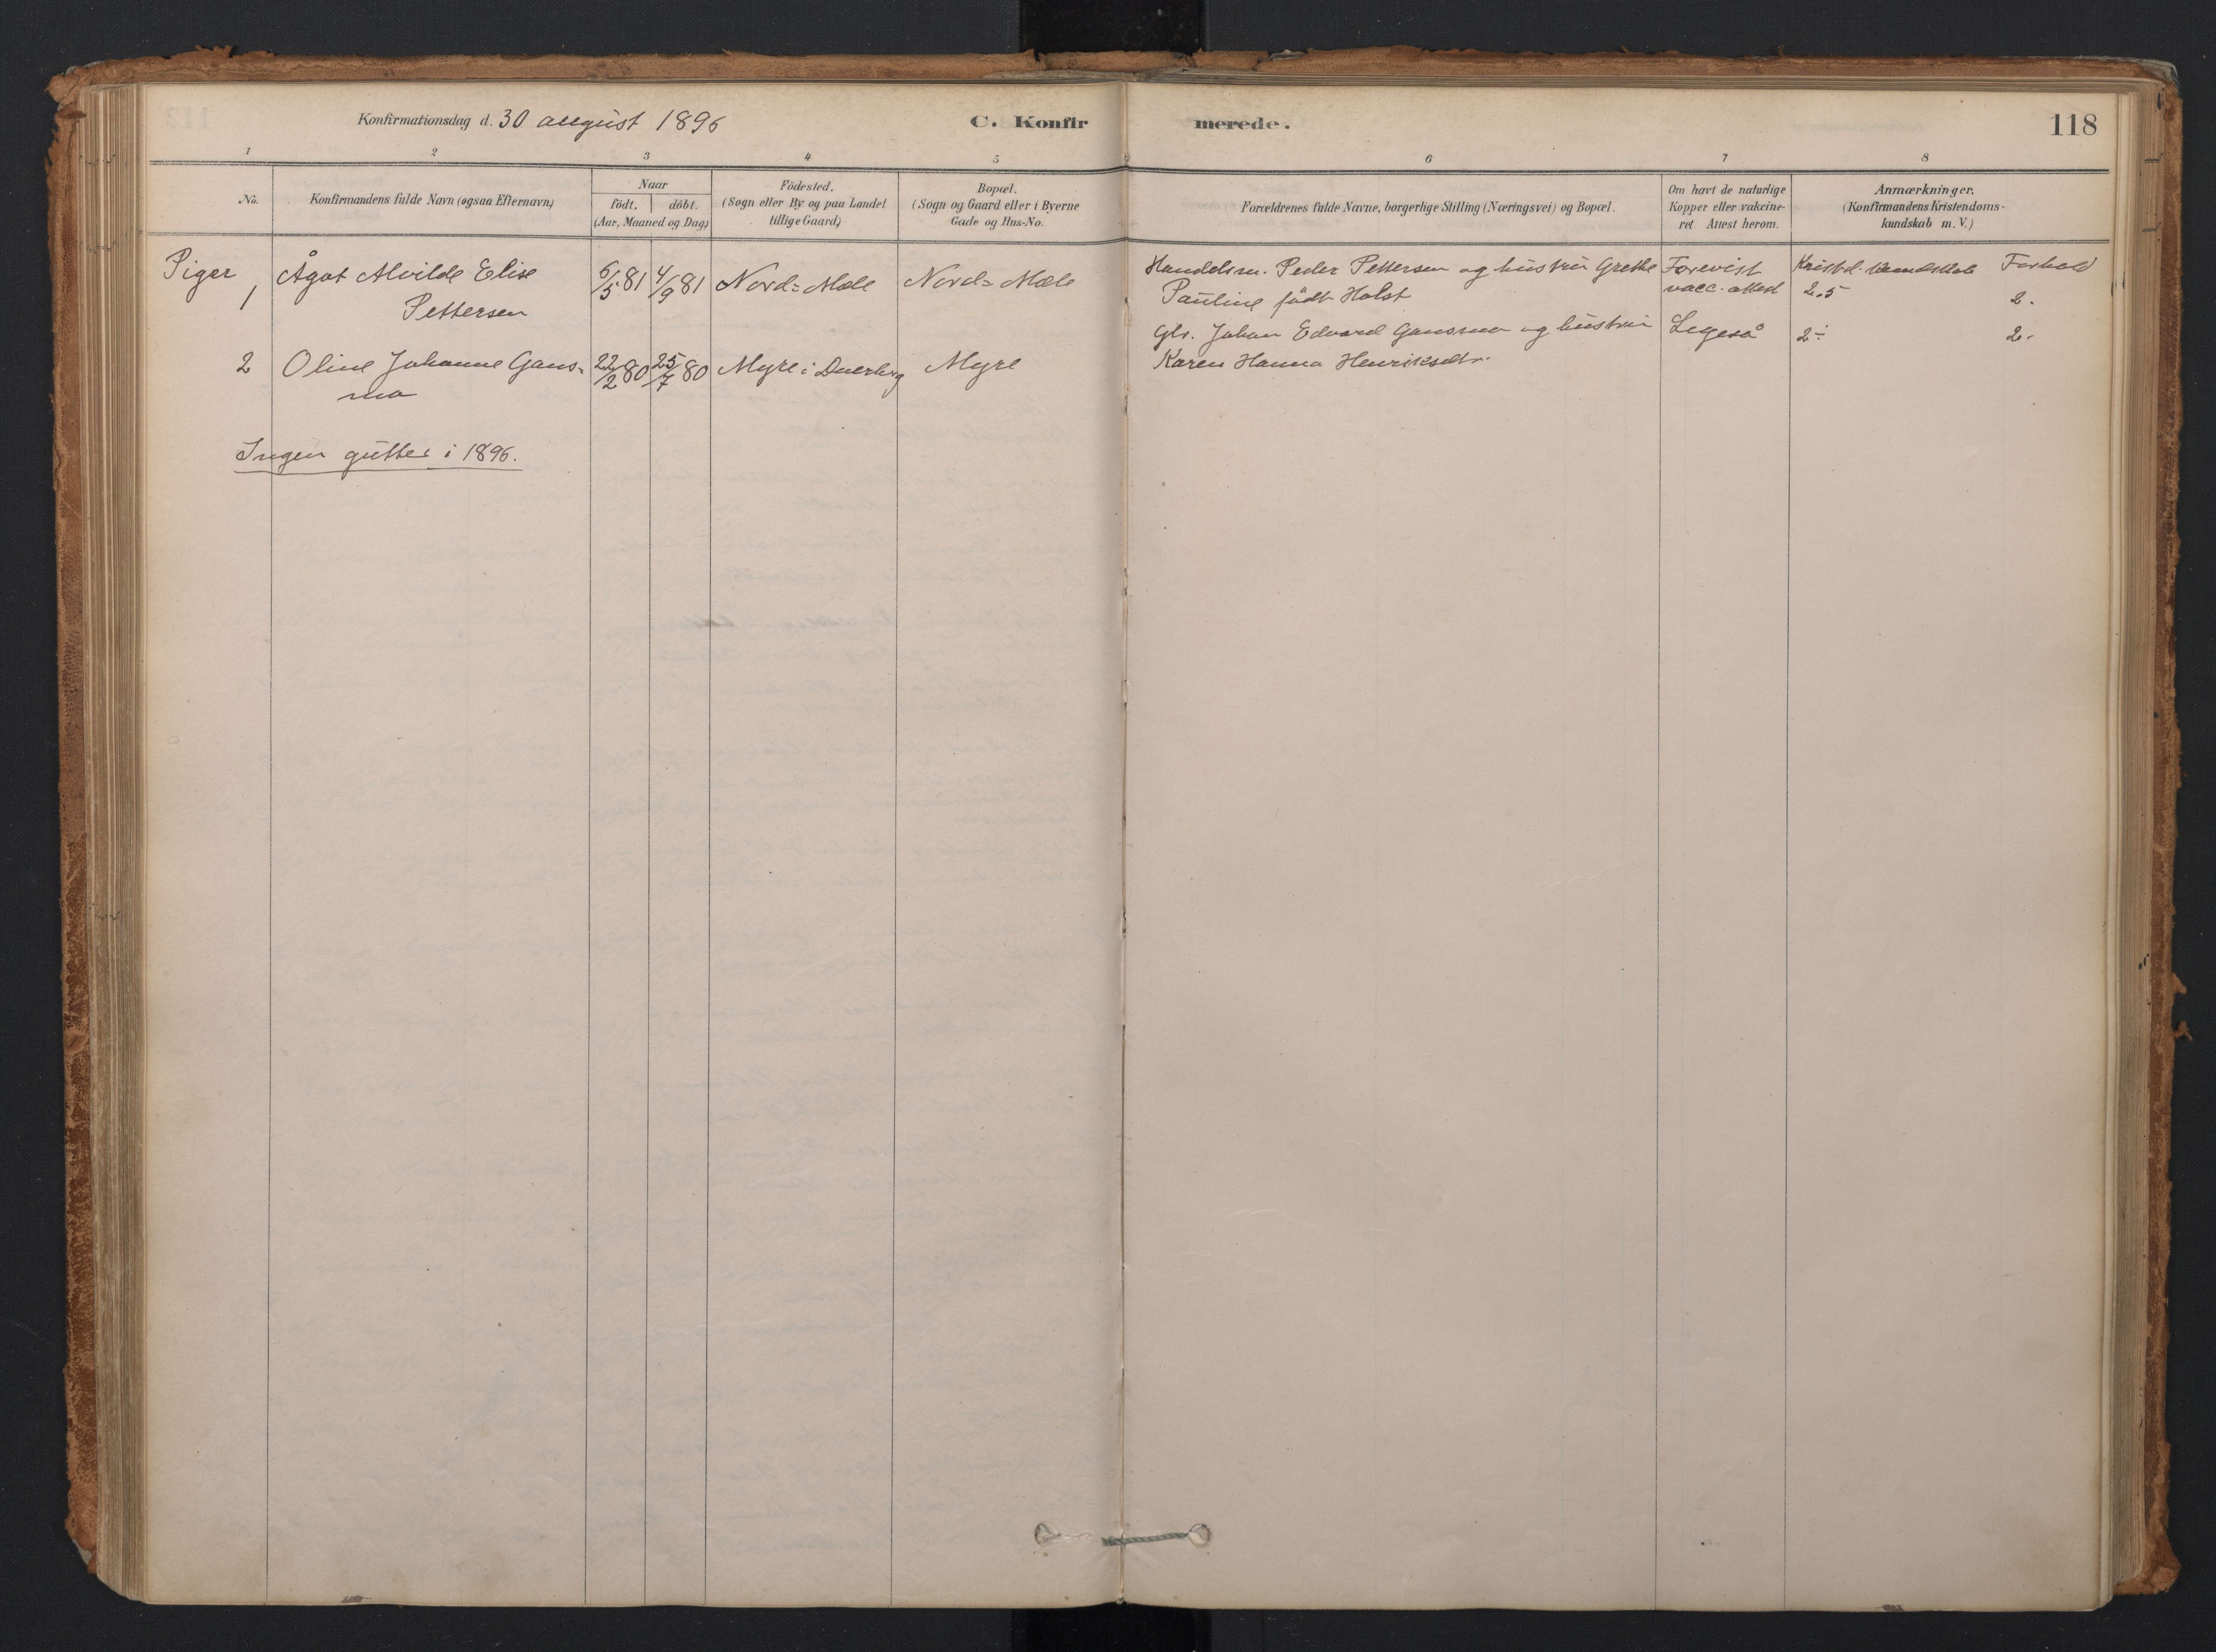 Konfirmationsdag d. 30 august 1896
C. Konfirmerede.
118
1 2 3 4 5 6 7 8
No.
Konfirmandens fulde Navn (ogsaa Efternavn)
Naar
födt. döbt.
(Aar, Maaned og Dag)
Födested.
(Sogn eller By og paa Landet
tillige Gaard)
Bopæl.
(Sogn og Gaard eller i Byerne
Gade og Hus-No.
Forældrenes fulde Navne, borgerlige Stilling (Næringsvei) og Bopæl.
Om havt de naturlige
Kopper eller vakcine-
ret Attest herom.
Anmærkninger.
(Konfirmandens Kristendoms-
kundskab m. V.)
Piger
1 Ågot Alvilde Elise
Pettersen
6/5 81 4/9 81 Nord-Mæle Nord-Mæle
Handelsm. Peder Pettersen og hustru Grethe
Pauline födt Holst
Forevist
vacc. attest
Kristd. kundskab Forhold
2.5 2.
2 Oline Johanne Gans-
ma
22/2 80 25/7 80 Myre i Dverberg Myre
Gbr. Johan Edvard Gansma og hustru
Karen Hanna Henriksdtr.
Ligeså 2÷ 2.
Ingen gutter i 1896.